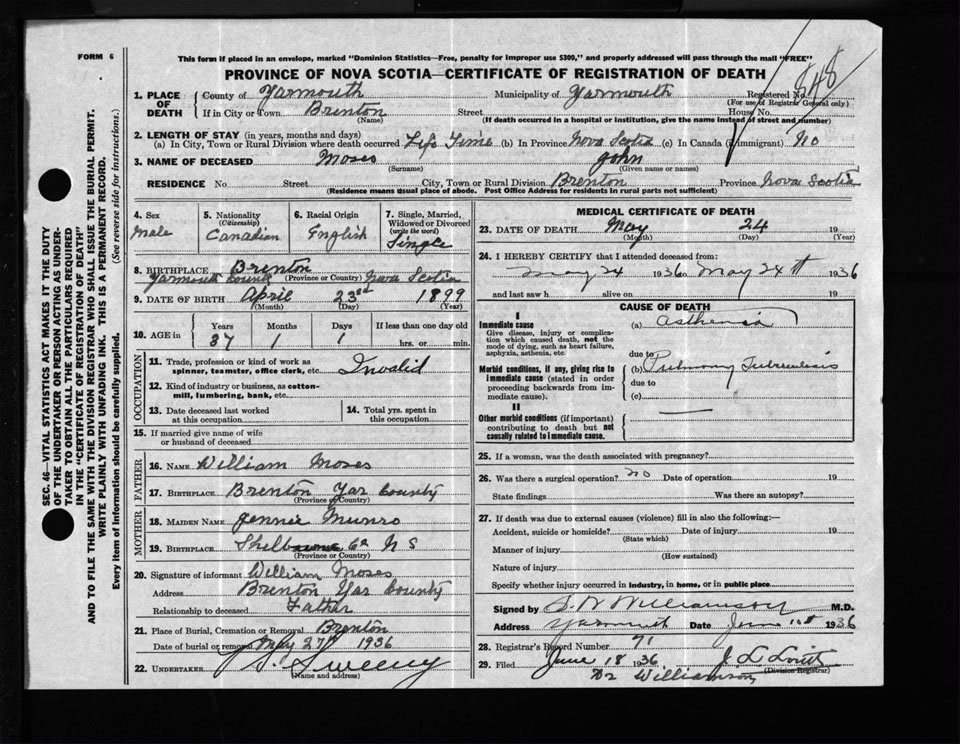 FORM 6
This form if placed in an envelope, marked "Dominion Statistics—Free, penalty for improper use $300," and properly addressed will pass through the mail "FREE"
PROVINCE OF NOVA SCOTIA—CERTIFICATE OF REGISTRATION OF DEATH
848
SEC. 46—VITAL STATISTICS ACT MAKES IT THE DUTY
OF THE UNDERTAKER OR PERSON ACTING AS UNDER-
TAKER TO OBTAIN ALL THE PARTICULARS REQUIRED
IN THE "CERTIFICATE OF REGISTRATION OF DEATH"
AND TO FILE THE SAME WITH THE DIVISION REGISTRAR WHO SHALL ISSUE THE BURIAL PERMIT.
WRITE PLAINLY WITH UNFADING INK. THIS IS A PERMANENT RECORD.
Every item of Information should be carefully supplied. (See reverse side for instructions.)
1. PLACE OF DEATH County of Yarmouth Municipality of Yarmouth Registered No.
(For use of Registrar General only)
If in City or Town Brenton Street House No.
(Name) (If death occurred in a hospital or institution, give the name instead of street and number)
2. LENGTH OF STAY (in years, months and days)
(a) In City, Town or Rural Division where death occurred Life Time (b) In Province Nova Scotia (c) In Canada (if immigrant) No
3. NAME OF DECEASED Moses John
(Surname) (Given name or names)
RESIDENCE No Street City, Town or Rural Division Brenton Province Nova Scotia
(Residence means usual place of abode. Post Office Address for residents in rural parts not sufficient)
4. Sex
Male
5. Nationality
(Citizenship)
Canadian
6. Racial Origin
English
7. Single, Married,
Widowed or Divorced
(write the word)
Single
8. BIRTHPLACE Brenton
Yarmouth County Nova Scotia
(Province or Country)
9. DATE OF BIRTH April 23rd 1899
(Month) (Day) (Year)
10. AGE in Years Months Days If less than one day old
37 1 1 hrs. or min.
OCCUPATION
11. Trade, profession or kind of work as
spinner, teamster, office clerk, etc. Invalid
12. Kind of industry or business, as cotton-
mill, lumbering, bank, etc.
13. Date deceased last worked
at this occupation
14. Total yrs. spent in
this occupation
15. If married give name of wife
or husband of deceased
FATHER
16. NAME William Moses
17. BIRTHPLACE Brenton Yar County
(Province or Country)
MOTHER
18. MAIDEN NAME Jennie Munro
19. BIRTHPLACE Shelburne Co N S
(Province or Country)
20. Signature of informant William Moses
Address Brenton Yar County
Relationship to deceased Father
21. Place of Burial, Cremation or Removal Brenton
Date of burial or removal May 27th 1936
22. UNDERTAKER Sweeny
(Name and address)
MEDICAL CERTIFICATE OF DEATH
23. DATE OF DEATH May 24 19
(Month) (Day) (Year)
24. I HEREBY CERTIFY that I attended deceased from:
May 24 1936 to May 24th 1936
and last saw h alive on 19
CAUSE OF DEATH
I
Immediate cause (a) Asthenia
Give disease, injury or complica-
tion which caused death, not the
mode of dying, such as heart failure,
asphyxia, asthenia, etc.
due to
Morbid conditions, if any, giving rise to
immediate cause (stated in order
proceeding backwards from im-
mediate cause).
(b) Pulmony Tuberculosis
due to
(c)
II
Other morbid conditions (if important)
contributing to death but not
causally related to immediate cause.
25. If a woman, was the death associated with pregnancy?
26. Was there a surgical operation? no Date of operation 19
State findings Was there an autopsy?
27. If death was due to external causes (violence) fill in also the following:—
Accident, suicide or homicide? Date of injury 19
(State which)
Manner of injury
(How sustained)
Nature of injury
Specify whether injury occurred in industry, in home, or in public place
Signed by Williamson M.D.
Address Yarmouth Date June 1936
28. Registrar's Record Number 71
29. Filed June 18 1936
(Division Registrar)
Williamson